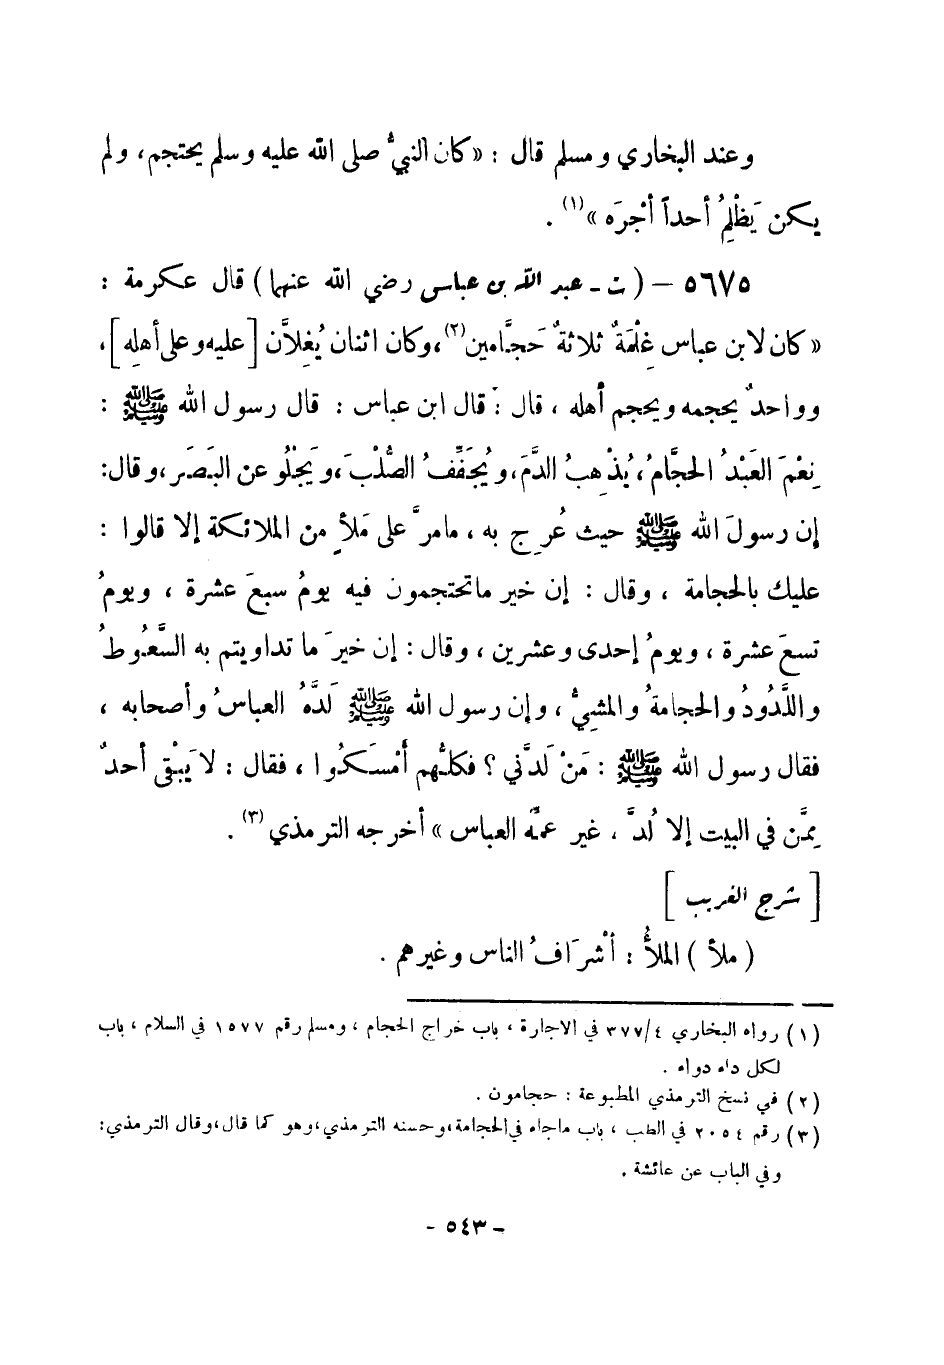 وعند البخاري ومسلم قال : «كان النبيُّ صلى الله عليه وسلم يحتجم، ولم
يكن يَظْلِمُ أحداً أجْرَه »(١) .
٥٦٧٥ – ( ت ـ عبد الله بن عباس رضي الله عنهما ) قال عكرمة :
« كان لابن عباس غِلْمَةٌ ثلاثةٌ حَجَّامين(٢)، وكان اثنان يُغِلاَّن [عليه وعلى أهلِه]،
وواحدٌ يحجمه ويحجم أهله ، قال : قال ابن عباس : قال رسول الله ﷺ :
نِعْمَ العَبْدُ الحجَّامُ، يُذْهِبُ الدَّمَ، ويُجَفِّفُ الصُّلْبَ، ويَجْلُو عن البَصَر، وقال:
إن رسولَ الله ﷺ حيث عُرِج به ، مامرَّ على مَلأٍ من الملائكة إلا قالوا :
عليك بالحجامة ، وقال : إن خير ماتحتجمون فيه يومُ سبعَ عشرة ، ويومُ
تسعَ عشرة ، ويومُ إحدى وعشرين ، وقال : إن خيرَ ما تداويتم به السَّعُوطُ
واللَّدُودُ والحجامةُ والمشيُّ ، وإن رسول الله ﷺ لَدَّهُ العباسُ وأصحابه ،
فقال رسول الله ﷺ : مَنْ لَدَّني ؟ فكلُّهم أمْسَكُوا ، فقال : لا يَبْقى أحدٌ
مِمَّن في البيت إلا لُدَّ ، غير عمِّه العباس » أخرجه الترمذي(٣) .
[ شرح الغريب ]
( ملأ ) الملأُ : أشْرَافُ الناس وغيرهم .
(١) رواه البخاري ٣٧٧/٤ في الاجارة ، باب خراج الحجام ، ومسلم رقم ١٥٧٧ في السلام ، باب
لكل داء دواء .
(٢) في نسخ الترمذي المطبوعة : حجامون .
(٣) رقم ٢٠٥٤ في الطب ، باب ماجاء في الحجامة، وحسنه الترمذي، وهو كما قال، وقال الترمذي:
وفي الباب عن عائشة .
- ٥٤٣ -